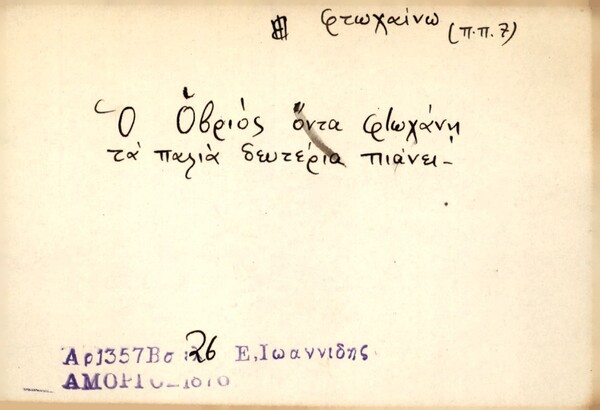 φτωχαίνω (π.π. 7)
Ὁ Ὀβριός ὅντα φτωχάνῃ
τά παλιά δευτέρια πιάνει –
Αρ1357Βσ : 26 Ε,Ιωαννίδης
ΑΜΟΡΓΟΣ 1876